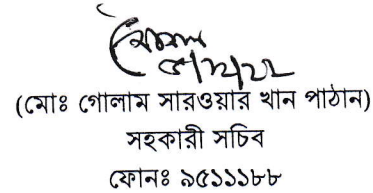 ৫/১২/২২
(মোঃ গোলাম সারওয়ার খান পাঠান)
সহকারী সচিব
ফোনঃ ৯৫১১১৮৮